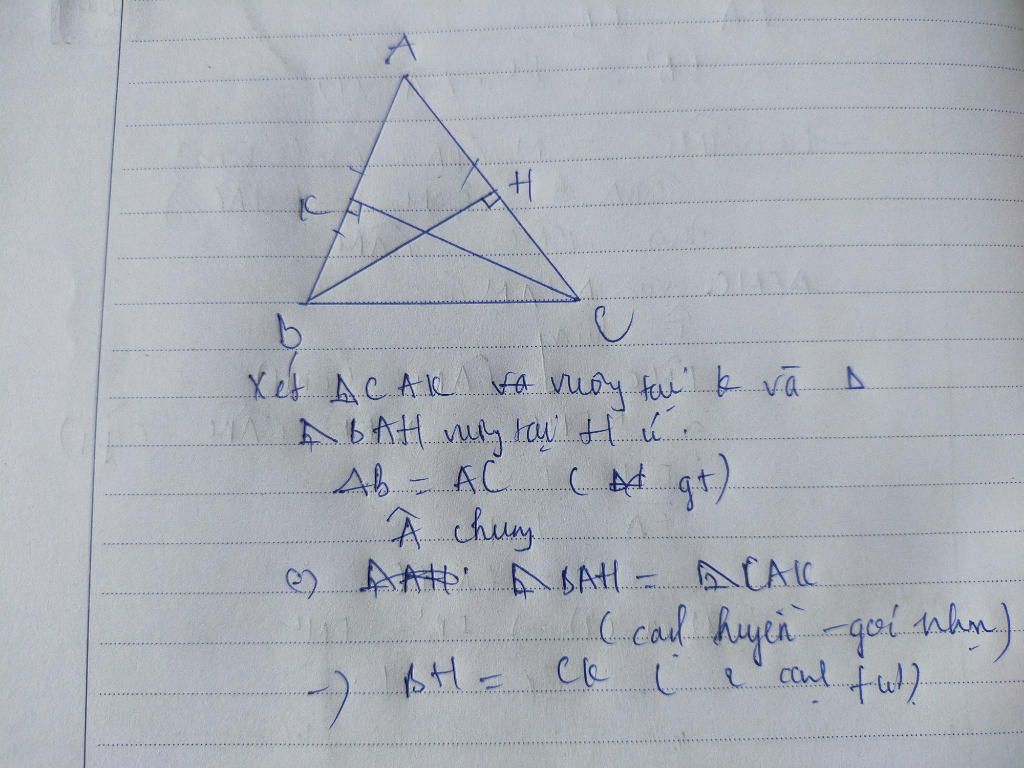 A
K
H
B
C
Xét ΔCAK vuông tại K và Δ
ΔBAH vuông tại H có:
AB = AC ( gt)
Â chung
=> ΔBAH = ΔCAK
(cạnh huyền - góc nhọn)
-) BH = CK ( 2 cạnh t/ư)